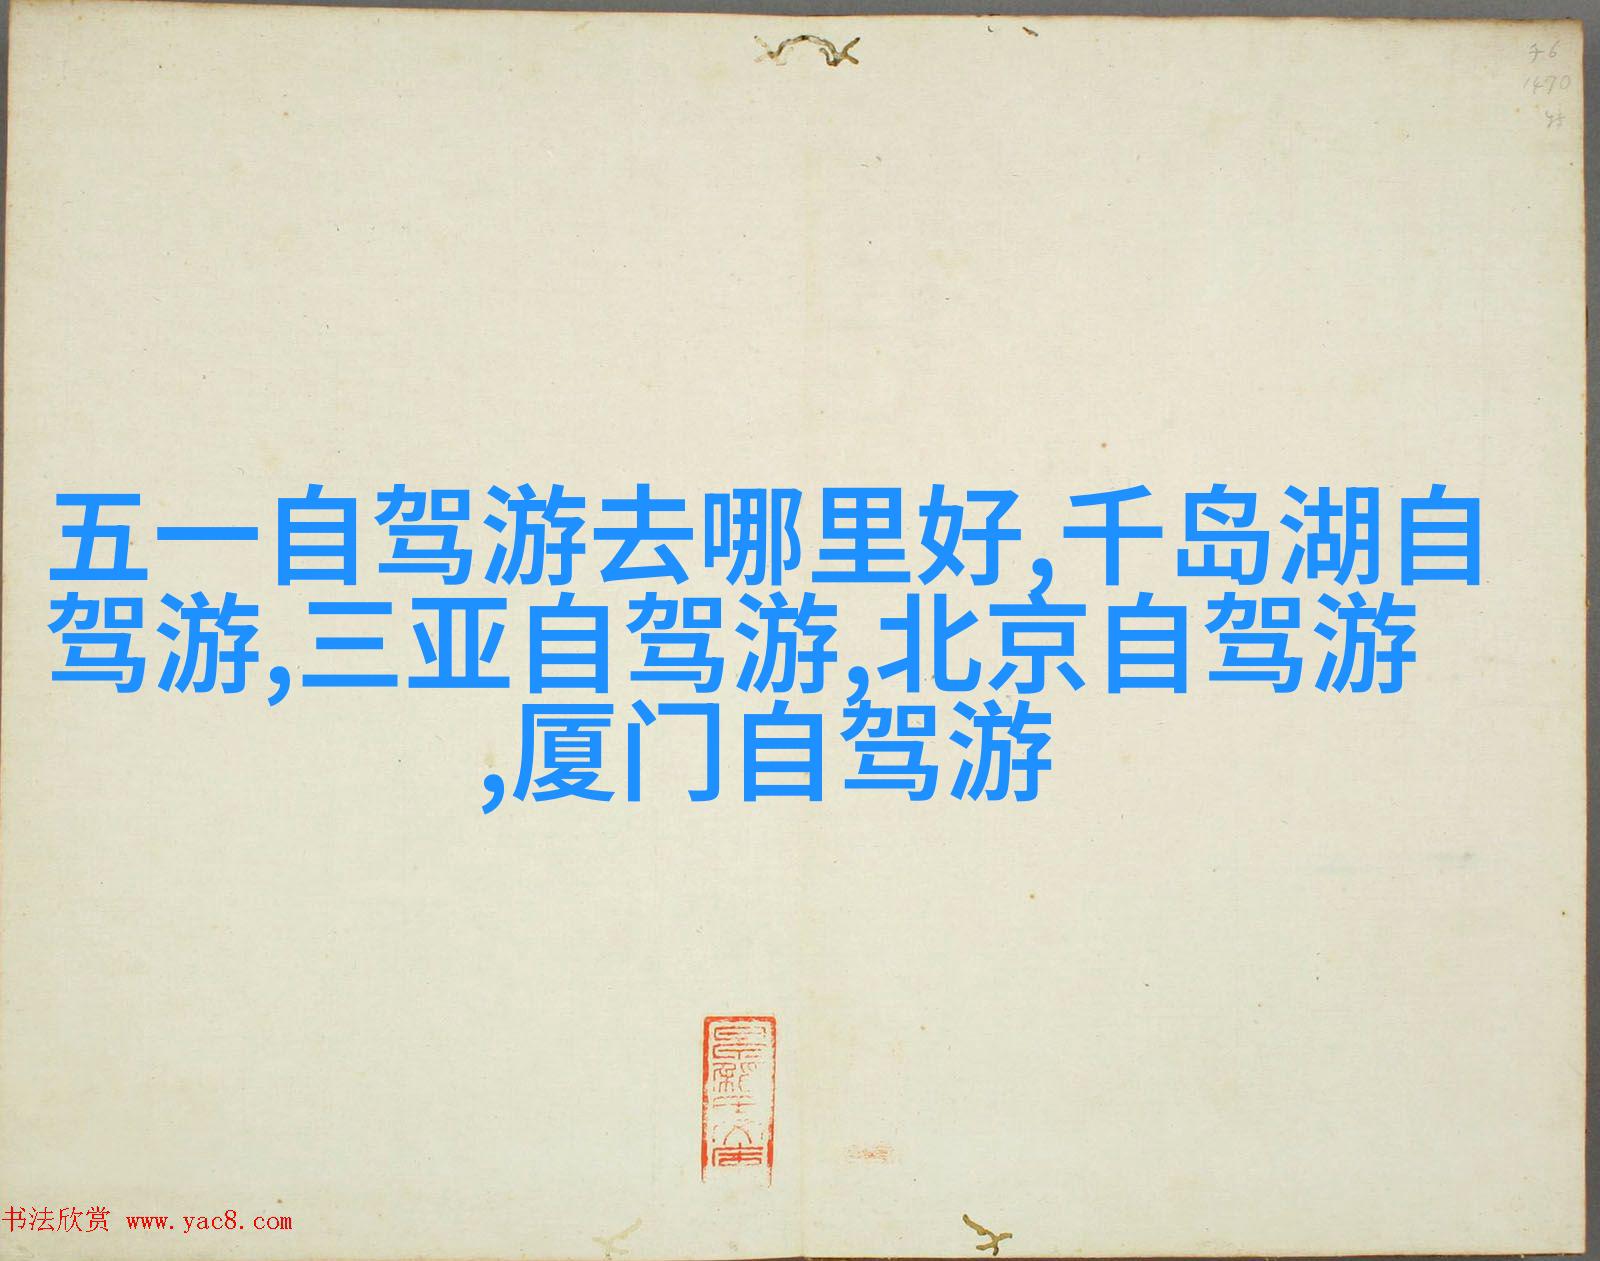 五一自驾游去哪里好,千岛湖自
驾游,三亚自驾游,北京自驾游
,厦门自驾游
1470
书法欣赏 www.yac8.com